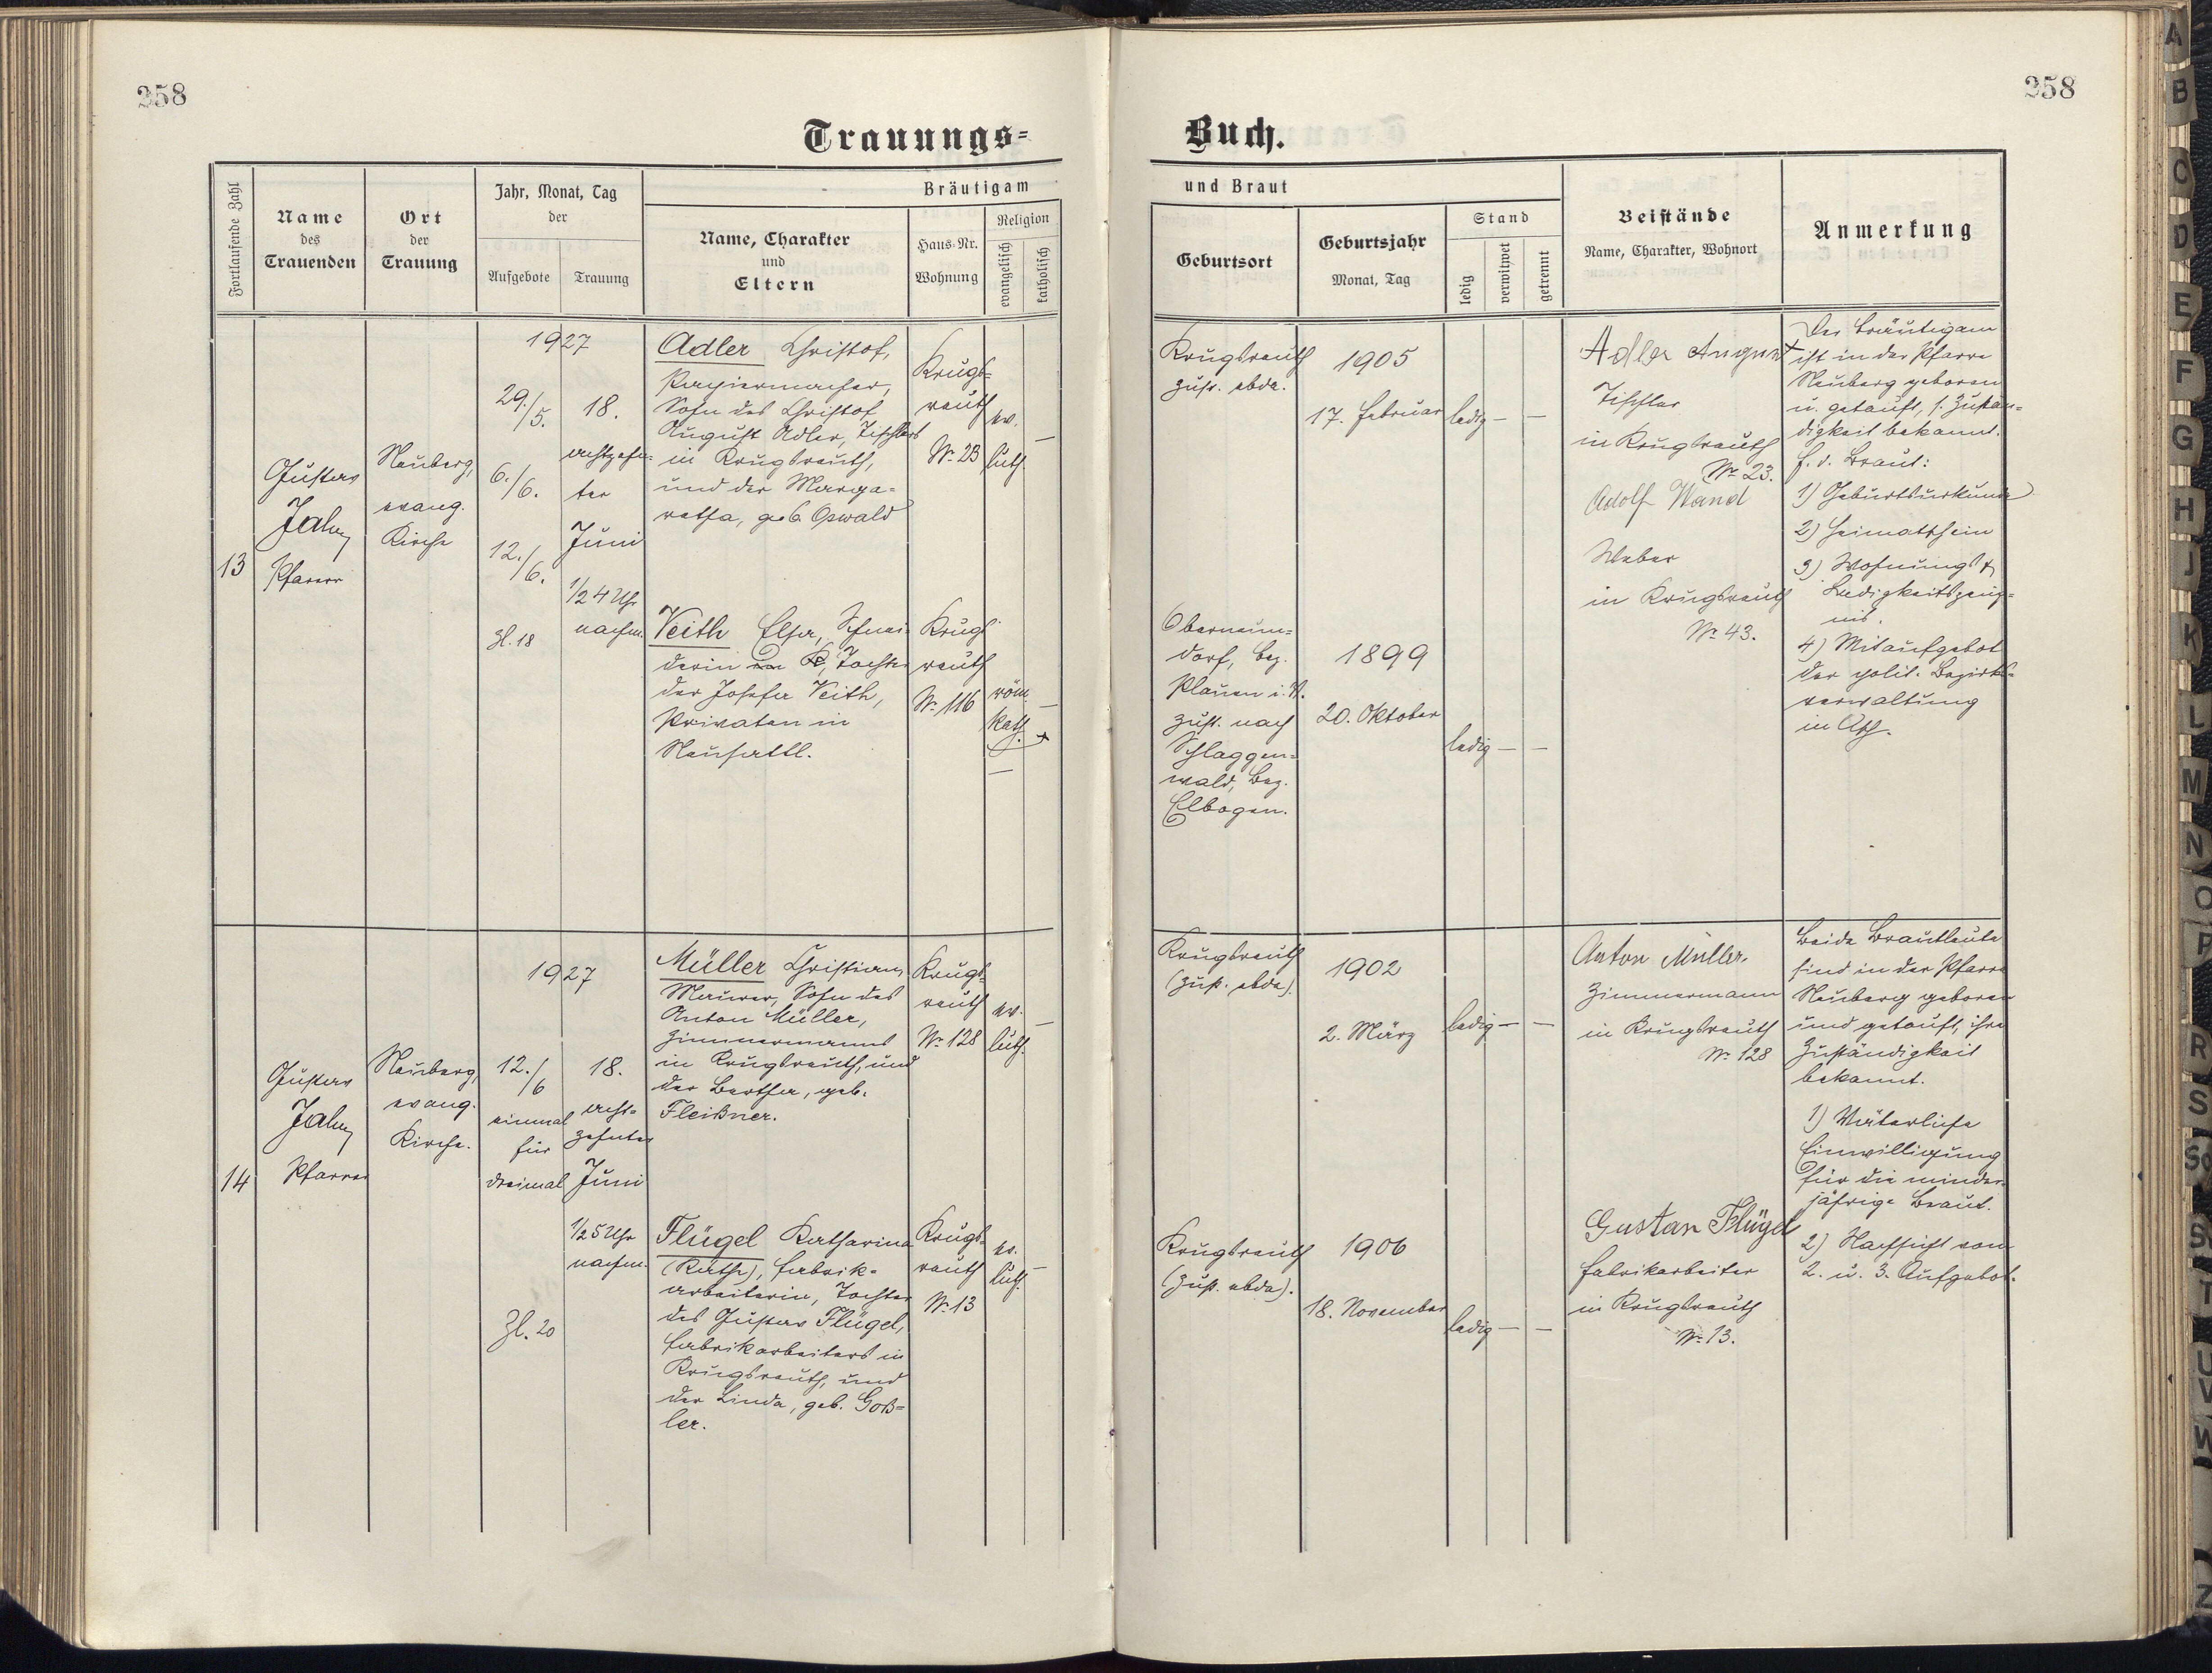 258
258
Trauungs=
Buch.
Fortlaufende Zahl
Name
des
Trauenden
Ort
der
Trauung
Jahr, Monat, Tag
der
Aufgebote
Trauung
Bräutigam
Name, Charakter
und
Eltern
Haus-Nr.
Wohnung
Religion
evangelisch
katholisch
und Braut
Geburtsort
Geburtsjahr
Monat, Tag
Stand
ledig
verwitwet
getrennt
Beistände
Name, Charakter, Wohnort
Anmerkung
13
Gustav
Jahn
Pfarrer
Neuberg,
evang.
Kirche
1927
29./5.
6./6.
12./6.
Zl. 18
18.
achtzehn=
ter
Juni
1/2 4 Uhr
nachm.
Adler Christof,
Papiermacher,
Sohn des Christof
August Adler, Tischlers
in Krugsreuth,
und der Marga=
retha, geb. Oswald
Krugs=
reuth
Nr. 23
ev.
luth.
—
Veith Elsa, Schnei=
derin in K, Tochter
der Josefa Veith,
Privaten in
Neusattl.
Krugs
reuth
Nr. 116
röm.
kath.
—
Krugsreuth
zust. ebda.
1905
17. Februar
ledig — —
Oberneun=
dorf, Bez.
Plauen i. V.
zust. nach
Schlaggen=
wald, Bez.
Elbogen.
1899
20. Oktober
ledig — —
Adler August
Tischler
in Krugsreuth
Nr. 23.
Adolf Wand
Weber
in Krugsreuth
Nr. 43.
Der Bräutigam
ist in der Pfarre
Neuberg geboren
u. getauft, s. Zustän=
digkeit bekannt.
f. d. Braut:
1) Geburtsurkunde
2) Heimatschein
3) Wohnungs &
Ledigkeitszeug=
nis.
4) Mitaufgebot
der polit. Bezirks=
verwaltung
in Asch.
14
Gustav
Jahn
Pfarrer
Neuberg,
evang.
Kirche.
1927
12./6
einmal
für
dreimal
Zl. 20
18.
acht=
zehnter
Juni
1/2 5 Uhr
nachm.
Müller Christian,
Maurer, Sohn des
Anton Müller,
Zimmermanns
in Krugsreuth, und
der Bertha, geb.
Fleißner.
Krugs=
reuth
Nr. 128
ev.
luth.
—
Flügel Katharina
(Käthe), Fabrik=
arbeiterin, Tochter
des Gustav Flügel,
Fabrikarbeiters in
Krugsreuth, und
der Linda, geb. Goß=
ler.
Krugs=
reuth
Nr. 13
ev.
luth.
—
Krugsreuth
(zust. ebda).
1902
2. März
ledig — —
Krugsreuth
(zust. ebda).
1906
18. November
ledig — —
Anton Müller.
Zimmermann
in Krugsreuth
Nr. 128
Gustav Flügel
Fabrikarbeiter
in Krugsreuth
Nr. 13.
Beide Brautleute
sind in der Pfarre
Neuberg geboren
und getauft, ihre
Zuständigkeit
bekannt.
1) Väterliche
Einwilligung
für die minder=
jährige Braut.
2) Nachsicht vom
2. u. 3. Aufgebot.
A
B
C
D
E
F
G
H
J
K
L
M
N
O
P
R
S
T
U
V
W
Z